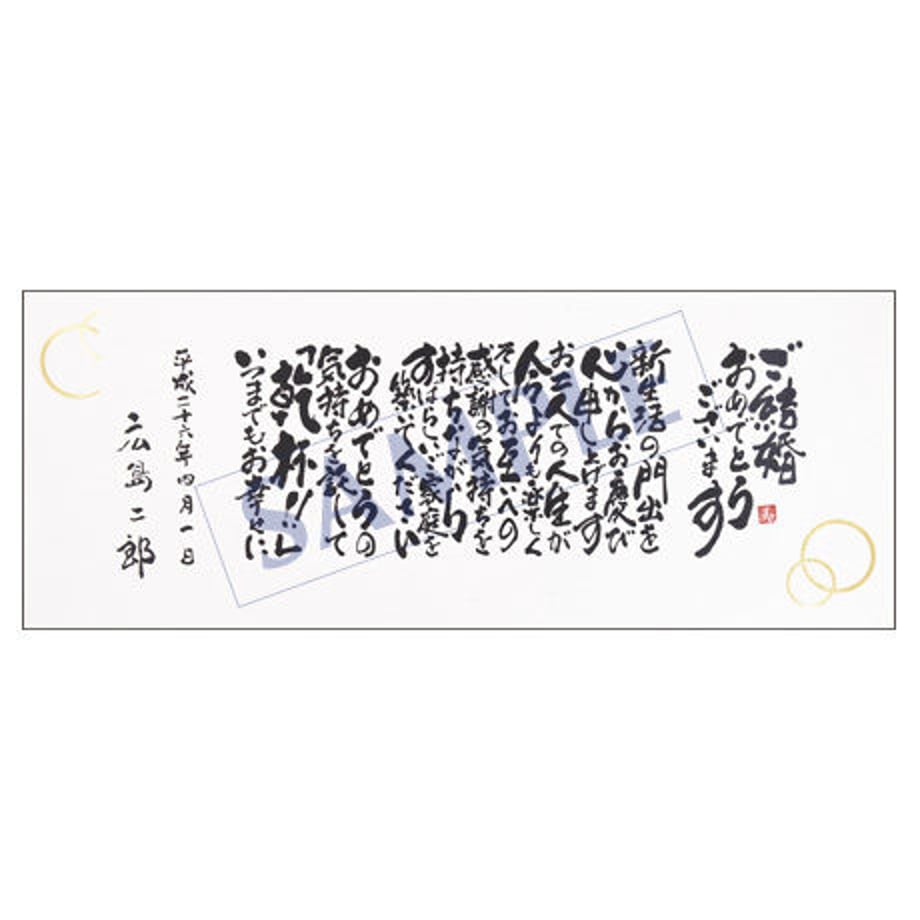 ご結婚
おめでとう
ございます
寿
新生活の門出を
心からお慶び
申し上げます
お二人での人生が
今よりも楽しく
そしてお互いへの
感謝の気持ちを
持ちながら
すばらしい家庭を
築いてください
おめでとうの
気持ちを託して
「乾杯!!」
いつまでもお幸せに
平成二十六年四月一日
広島二郎
SAMPLE